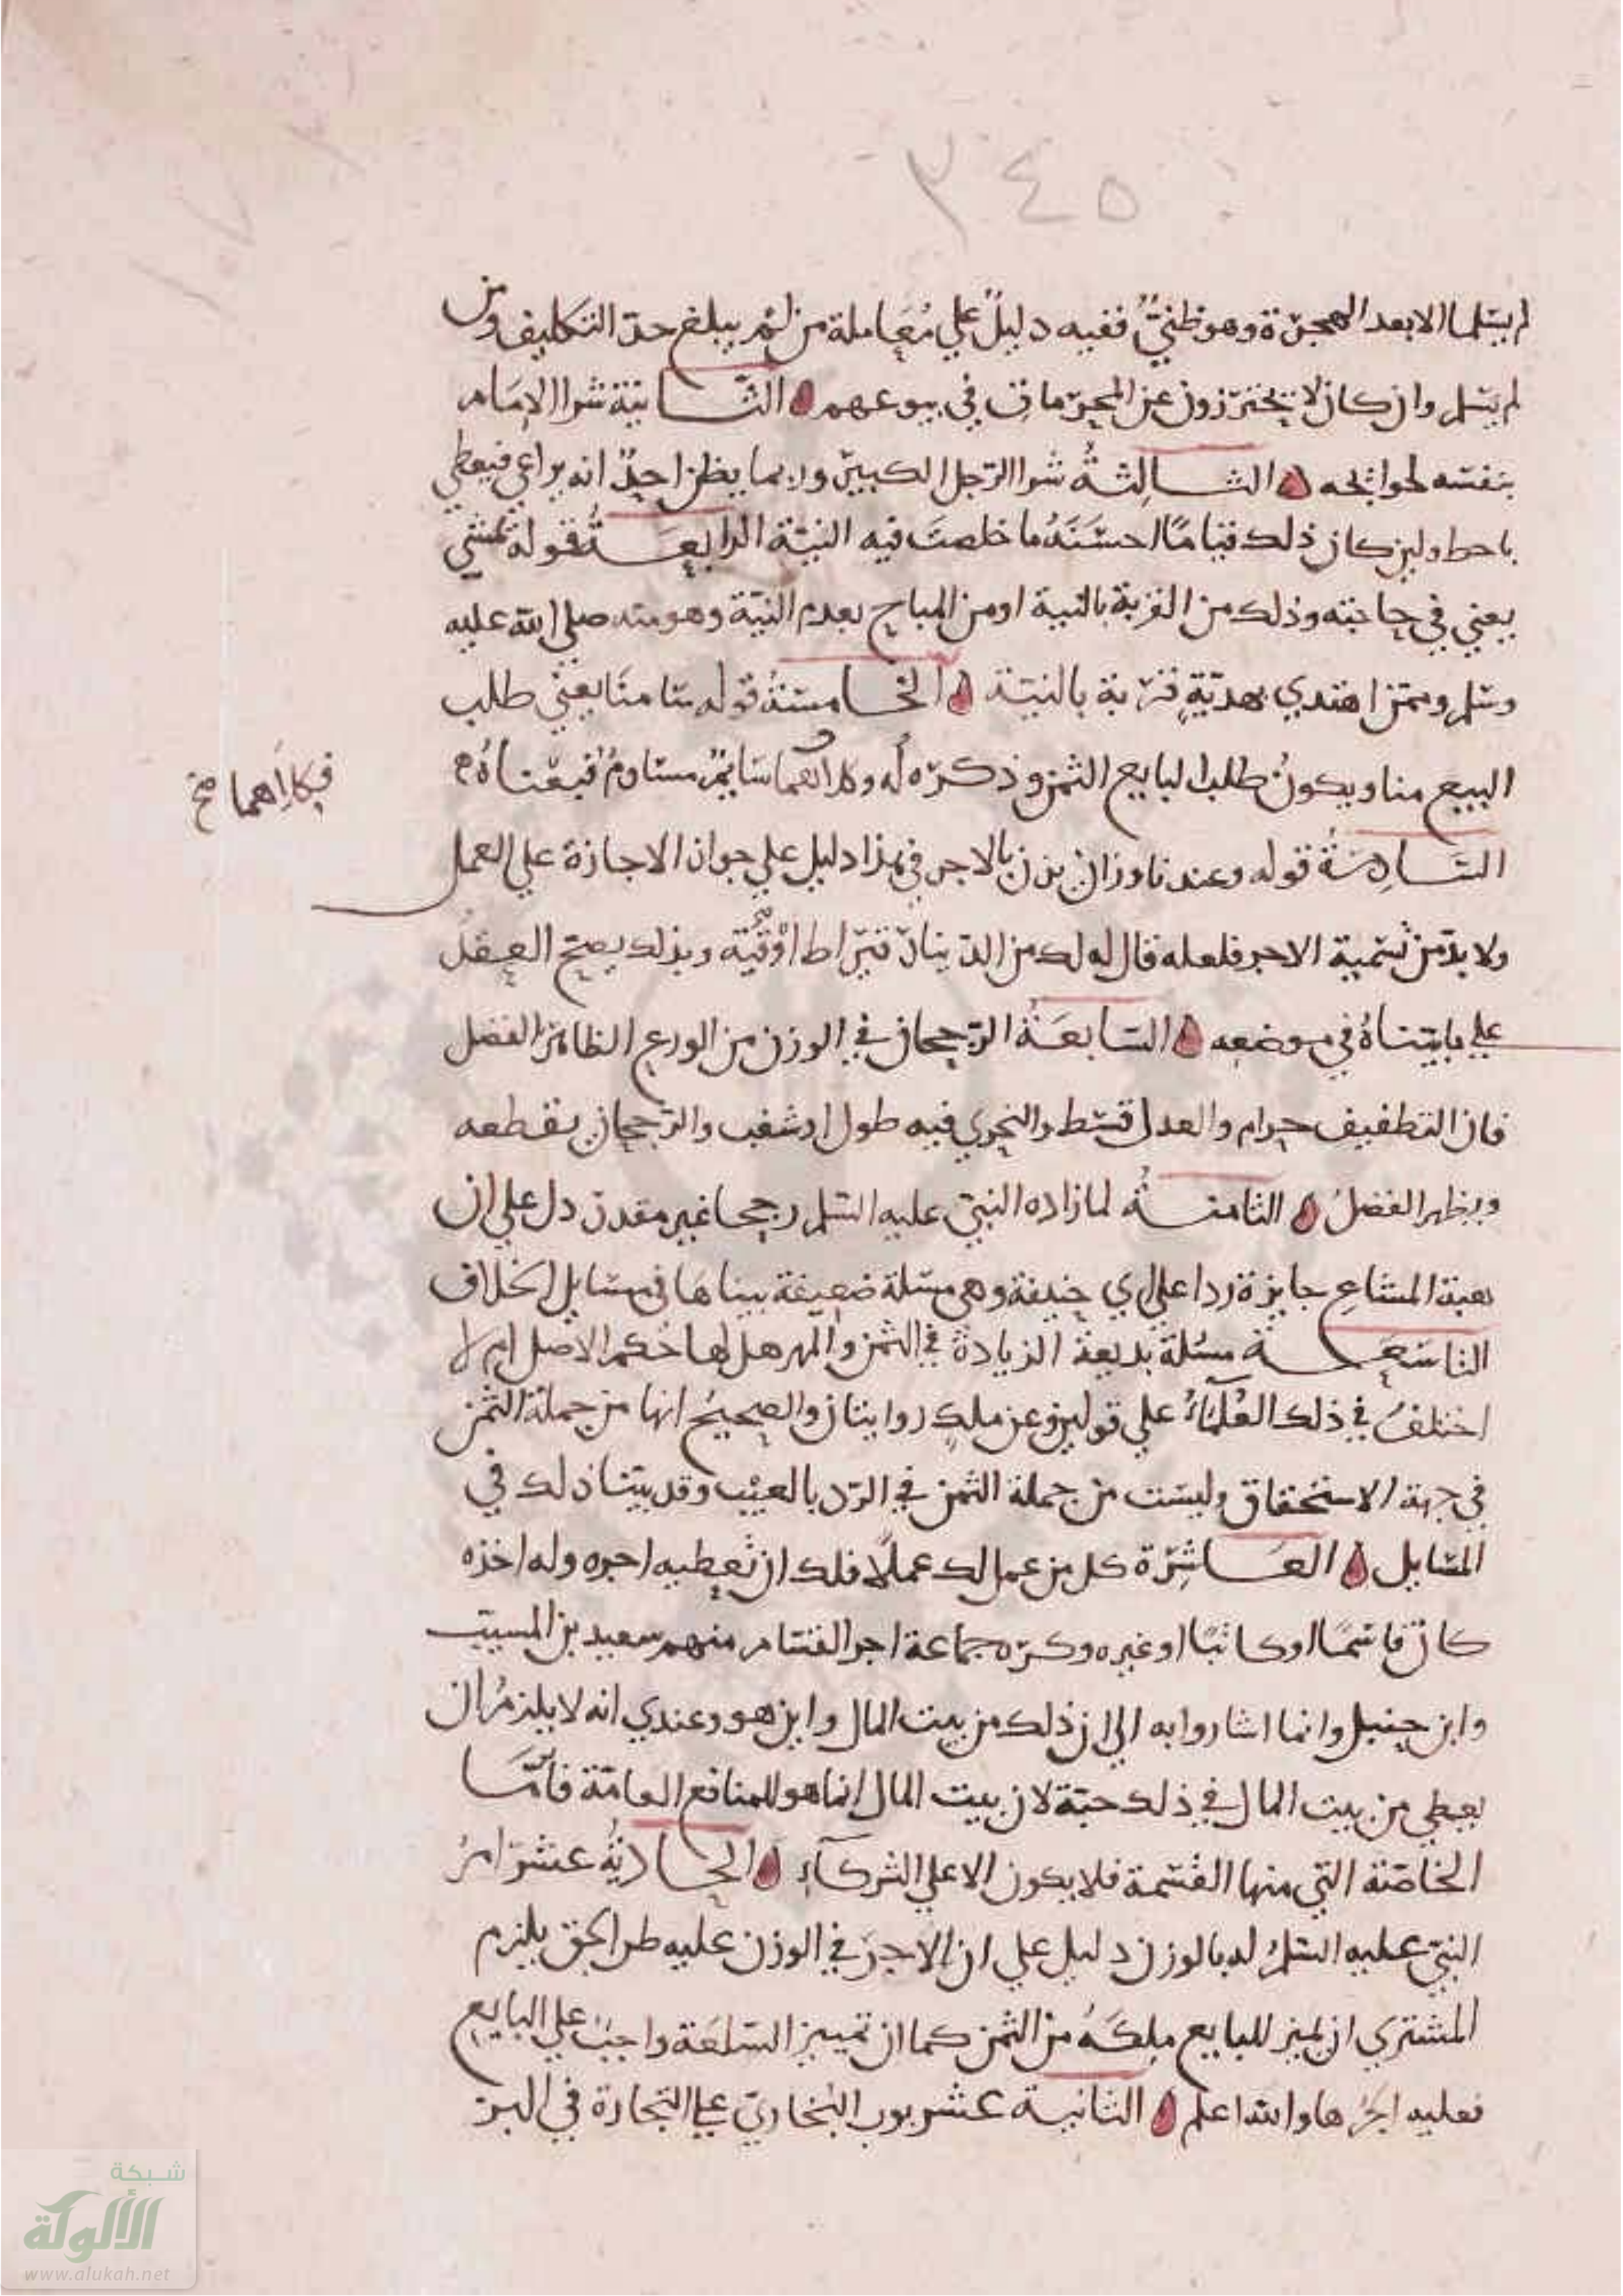 ٣٤٥
لم يسلما الا بعد الهجرة وهو ظني ففيه دليل علي معاملة من لم يبلغ حد التكليف ومن
لم يسلم وان كان لا يحترزون عن المحرمات في بيوعهم الثانية شرا الامام
بنفسه لحوائجه الثالثة شرا الرجل الكبير وربما يظن احد انه يراعي فيعطي
باحط ولين كان ذلك فيا ما احسنه ما خلصت فيه النية الرابعة قوله تمشي
يعني في حاجته وذلك من القربة بالنية او من المباح بعدم النية وهو منه صلي الله عليه
وسلم وممن اهتدي بهديه قربة بالنية الخامسة قوله سامنا يعني طلب
البيع منا ويكون طلب البايع الثمن وذكره له وكلاهما سايم مساوم فبعناه
فكلاهما صح
السادسة قوله وعندنا وزان يزن بالاجر في هذا دليل علي جواز الاجازة علي العمل
ولا بد من تسمية الاجر فلعله قال له لك من الدينار قيراط اوقية وبذلك يصح العقد
علي ما بيناه في موضعه السابعة الرجحان في الوزن من الورع الظاهر الفضل
فان التطفيف حرام والعدل قسط والتحري فيه طول او شغب والرجحان يقطعه
ويظهر الفضل الثامنة لما زاده النبي عليه السلم رجحا غير مقدر دل علي ان
هبة المشاع جايزة ردا علي ابي حنيفة وهي مسلة ضعيفة بيناها في مسايل الخلاف
التاسعة مسئلة بديعة الزيادة في الثمن والمهر هل لها حكم الاصل ام لا
اختلف في ذلك العلماء علي قولين وعن ملك روايتان والصحيح انها من جملة الثمن
في جهة الاستحقاق وليست من جملة الثمن في الرد بالعيب وقد بينا ذلك في
المسايل العاشرة كل من عمل لك عملا فلك ان تعطيه اجره وله اخذه
كان قاسما او كاتبا او غيره وكره جماعة اجر القسام منهم سعيد بن المسيب
وابن حنبل وانما اشاروا به الي ان ذلك من بيت المال واين هو وعندي انه لا يلزم ان
يعطي من بيت المال في ذلك حبة لان بيت المال انما هو للمنافع العامة فاما
الخاصة التي منها القسمة فلا يكون الا علي الشركاء الحادية عشر امر
النبي عليه السلم له بالوزن دليل علي ان الاجر في الوزن عليه طرا لحق يلزم
المشتري ان يميز للبايع ملكه من الثمن كما ان تمييز السلعة واجب علي البايع
فعليه اجرها والله اعلم الثانية عشر بوب البخاري علي التجارة في البر
شبكة
الألوكة
www.alukah.net